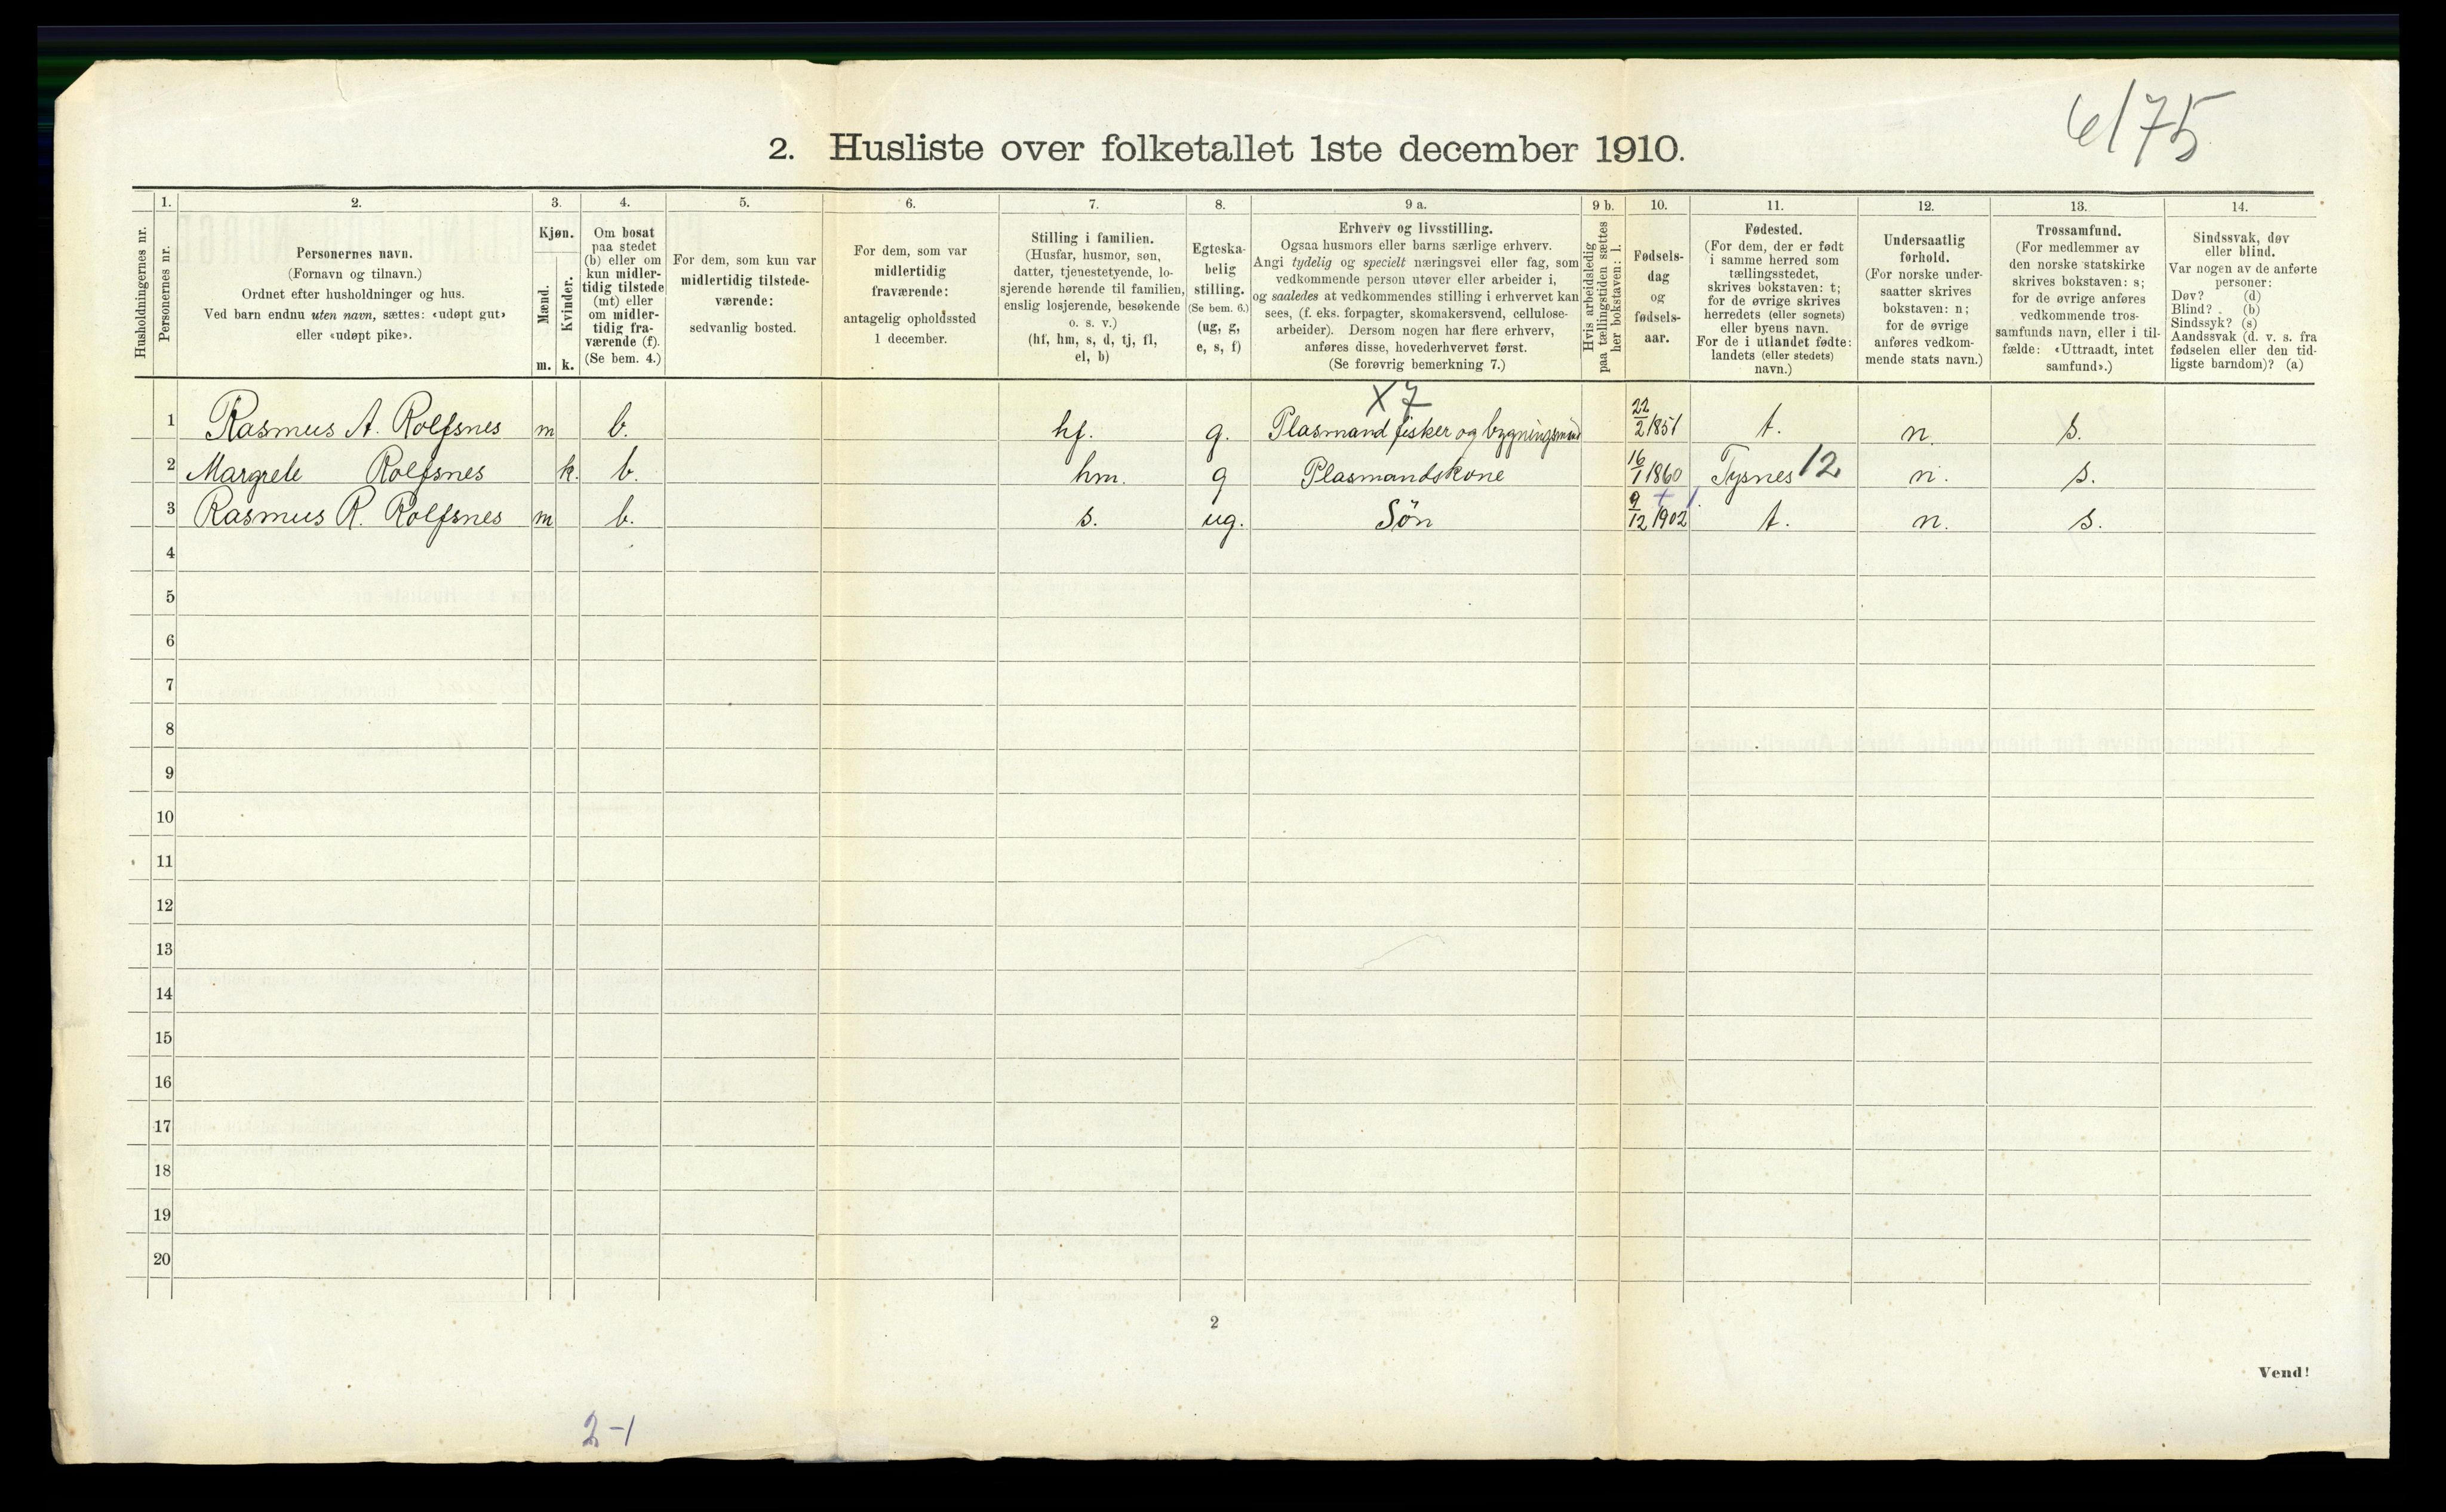 6/75
2. Husliste over folketallet 1ste december 1910.
Husholdningernes nr.
1.
Personernes nr.
2.
Personernes navn.
(Fornavn og tilnavn.)
Ordnet efter husholdninger og hus.
Ved barn endnu uten navn, sættes: «udøpt gut»
eller «udøpt pike».
3.
Kjøn.
Mænd.
Kvinder.
m. k.
4.
Om bosat
paa stedet
(b) eller om
kun midler-
tidig tilstede
(mt) eller
om midler-
tidig fra-
værende (f).
(Se bem. 4.)
5.
For dem, som kun var
midlertidig tilstede-
værende:
sedvanlig bosted.
6.
For dem, som var
midlertidig
fraværende:
antagelig opholdssted
1 december.
7.
Stilling i familien.
(Husfar, husmor, søn,
datter, tjenestetyende, lo-
sjerende hørende til familien,
enslig losjerende, besøkende
o. s. v.)
(hf, hm, s, d, tj, fl,
el, b)
8.
Egteska-
belig
stilling.
(Se bem. 6.)
(ug, g,
e, s, f)
9 a.
Erhverv og livsstilling.
Ogsaa husmors eller barns særlige erhverv.
Angi tydelig og specielt næringsvei eller fag, som
vedkommende person utøver eller arbeider i,
og saaledes at vedkommendes stilling i erhvervet kan
sees, (f. eks. forpagter, skomakersvend, cellulose-
arbeider). Dersom nogen har flere erhverv,
anføres disse, hovederhvervet først.
(Se forøvrig bemerkning 7.)
9 b.
Hvis arbeidsledig
paa tællingstiden sættes
her bokstaven: l.
10.
Fødsels-
dag
og
fødsels-
aar.
11.
Fødested.
(For dem, der er født
i samme herred som
tællingsstedet,
skrives bokstaven: t;
for de øvrige skrives
herredets (eller sognets)
eller byens navn.
For de i utlandet fødte:
landets (eller stedets)
navn.)
12.
Undersaatlig
forhold.
(For norske under-
saatter skrives
bokstaven: n;
for de øvrige
anføres vedkom-
mende stats navn.)
13.
Trossamfund.
(For medlemmer av
den norske statskirke
skrives bokstaven: s;
for de øvrige anføres
vedkommende tros-
samfunds navn, eller i til-
fælde: «Uttraadt, intet
samfund».)
14.
Sindssvak, døv
eller blind.
Var nogen av de anførte
personer:
Døv? (d)
Blind? (b)
Sindssyk? (s)
Aandssvak (d. v. s. fra
fødselen eller den tid-
ligste barndom)? (a)
X 7
1 Rasmus A. Rolfsnes m b. hf. g. Plasmand fisker og bygningsmand 22/2 1851 t. n. s.
2 Margrete Rolfsnes k. b. hm. g Plasmandskone 16/1 1860 Tysnes 12 n. s.
3 Rasmus R. Rolfsnes m b. s. ug. Søn 9/12 1902 t. n. s.
4
5
6
7
8
9
10
11
12
13
14
15
16
17
18
19
20
2
Vend!
2-1